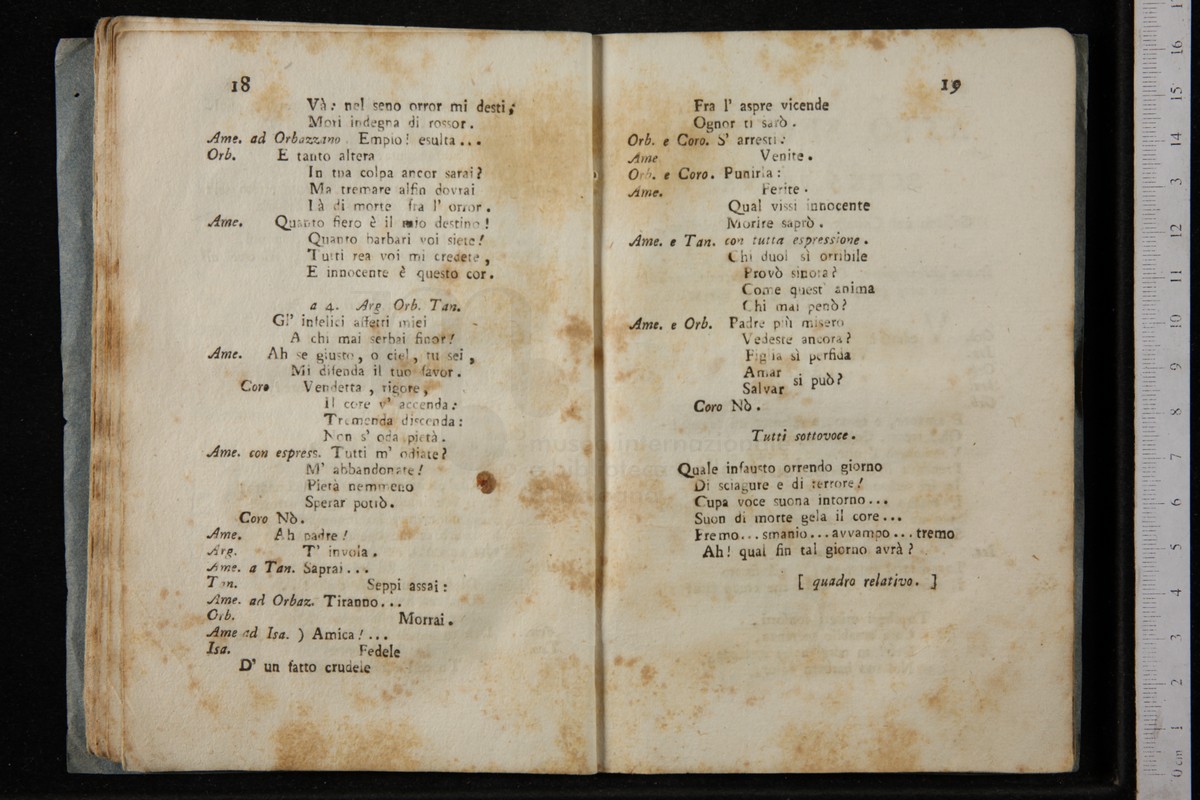 18
Và: nel seno orror mi desti;
Mori indegna di rossor.
Ame. ad Orbazzano Empio! esulta...
Orb. E tanto altera
In tua colpa ancor sarai?
Ma tremare alfin dovrai
Là di morte fra l' orror.
Ame. Quanto fiero è il mio destino!
Quanto barbari voi siete!
Tutti rea voi mi credete,
E innocente è questo cor.
a 4. Arg. Orb. Tan.
Gl' infelici affetti miei
A chi mai serbai finor!
Ame. Ah se giusto, o ciel, tu sei,
Mi difenda il tuo favor.
Coro Vendetta, rigore,
Il core v' accenda:
Tremenda discenda:
Non s' oda pietà.
Ame. con espress. Tutti m' odiate?
M' abbandonate!
Pietà nemmeno
Sperar potrò.
Coro Nò.
Ame. Ah padre!
Arg. T' invola.
Ame. a Tan. Saprai...
Tan. Seppi assai:
Ame. ad Orbaz. Tiranno...
Orb. Morrai.
Ame ad Isa. ) Amica!...
Isa. Fedele
D' un fatto crudele
19
Fra l' aspre vicende
Ognor ti sarò.
Orb. e Coro. S' arresti:
Ame Venite.
Orb. e Coro. Punirla:
Ame. Ferite.
Qual vissi innocente
Morire saprò.
Ame. e Tan. con tutta espressione.
Chi duol sì orribile
Provò sinora?
Come quest' anima
Chi mai penò?
Ame. e Orb. Padre più misero
Vedeste ancora?
Figlia sì perfida
Amar
Salvar si può?
Coro Nò.
Tutti sottovoce.
Quale infausto orrendo giorno
Di sciagure e di terrore!
Cupa voce suona intorno...
Suon di morte gela il core...
Fremo... smanio... avvampo... tremo
Ah! qual fin tal giorno avrà?
[ quadro relativo. ]
museo internazionale
e biblioteca
0 cm 1 2 3 4 5 6 7 8 9 10 11 12 13 14 15 16